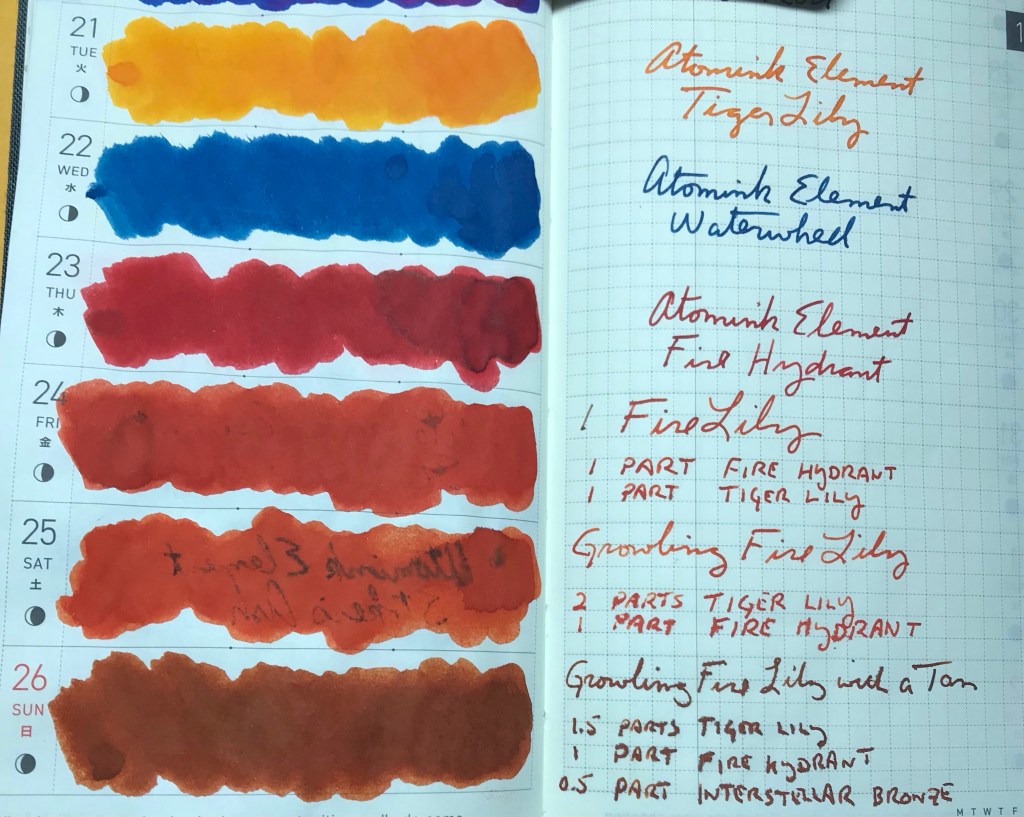 21
TUE
火
22
WED
水
23
THU
木
24
FRI
金
25
SAT
土
26
SUN
日
1
Atomink Element
Tiger Lily
Atomink Element
Waterwheel
Atomink Element
Fire Hydrant
1 Fire Lily
1 PART FIRE HYDRANT
1 PART TIGER LILY
Growling Fire Lily
2 PARTS TIGER LILY
1 PART FIRE HYDRANT
Growling Fire Lily with a Tan
1.5 PARTS TIGER LILY
1 PART FIRE HYDRANT
0.5 PART INTERSTELLAR BRONZE
M T W T F